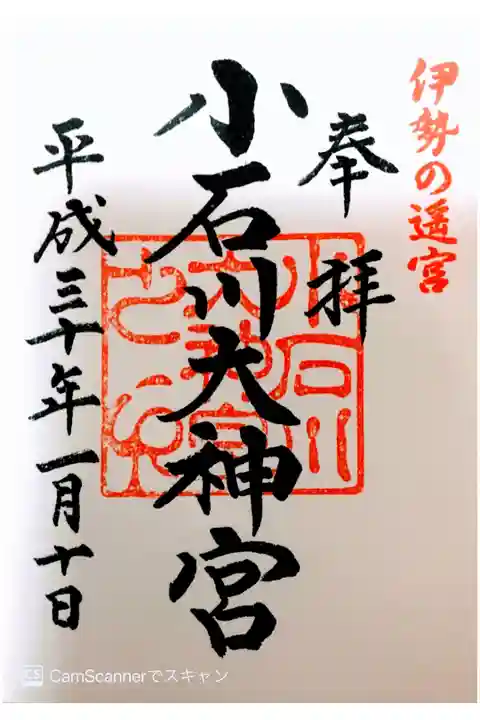 伊勢の遥宮
奉拝
小石川大神宮
平成三十年一月十日
CS CamScannerでスキャン